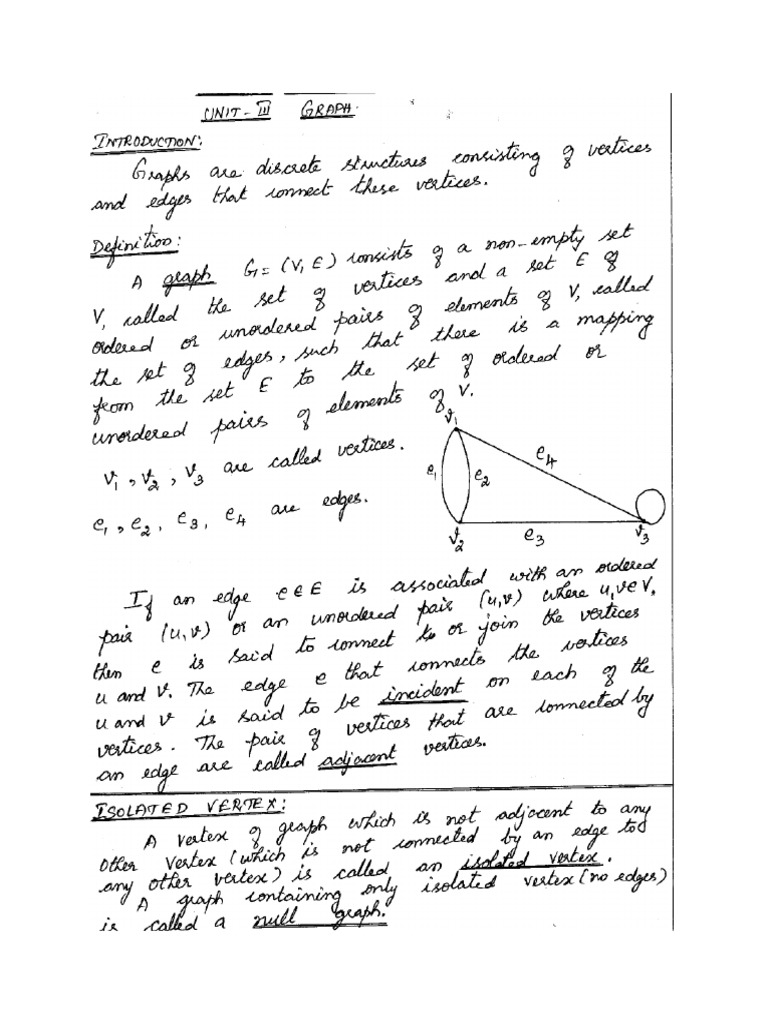 UNIT-III GRAPH.
INTRODUCTION:
Graphs are discrete structures consisting of vertices
and edges that connect these vertices.
Definition:
A graph G=(V,E) consists of a non-empty set
V, called the set of vertices and a set E of
ordered or unordered pairs of elements of V, called
the set of edges, such that there is a mapping
from the set E to the set of ordered or
unordered pairs of elements of V.
v1, v2, v3 are called vertices.
e1, e2, e3, e4 are edges.
v1
e1
e2
e4
v2
e3
v3
If an edge e∈E is associated with an ordered
pair (u,v) or an unordered pair (u,v) where u,v∈V,
then e is said to connect to or join the vertices
u and v. The edge e that connects the vertices
u and v is said to be incident on each of the
vertices. The pair of vertices that are connected by
an edge are called adjacent vertices.
ISOLATED VERTEX:
A vertex of graph which is not adjacent to any
other vertex (which is not connected by an edge to
any other vertex) is called an isolated vertex.
A graph containing only isolated vertex (no edges)
is called a null graph.